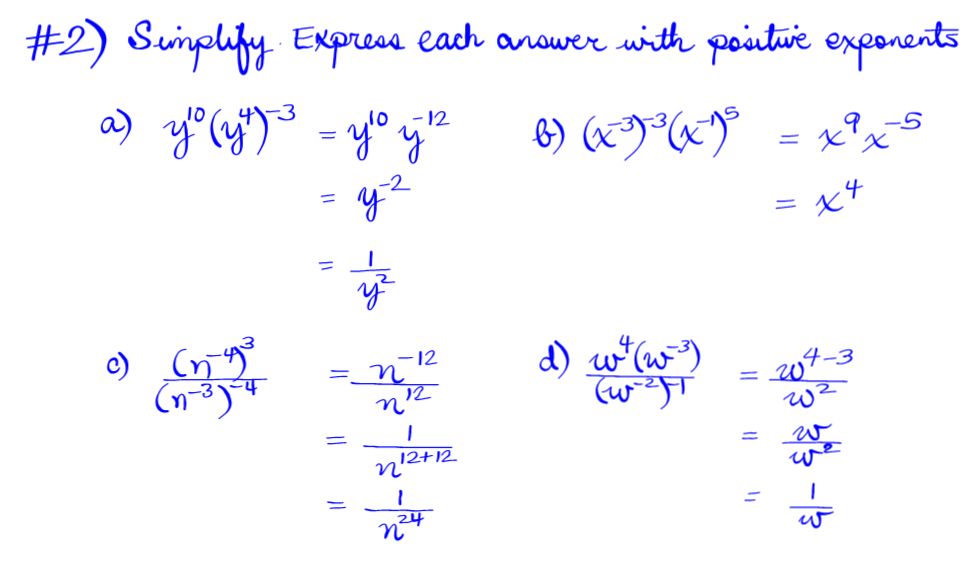 #2) Simplify. Express each answer with positive exponents
a) y¹⁰(y⁴)⁻³ = y¹⁰ y⁻¹²
= y⁻²
= 1/y²
b) (x⁻³)⁻³(x⁻¹)⁵ = x⁹x⁻⁵
= x⁴
c) (n⁻⁴)³/(n⁻³)⁻⁴ = n⁻¹²/n¹²
= 1/n¹²⁺¹²
= 1/n²⁴
d) w⁴(w⁻³)/(w⁻²)⁻¹ = w⁴⁻³/w²
= w/w²
= 1/w